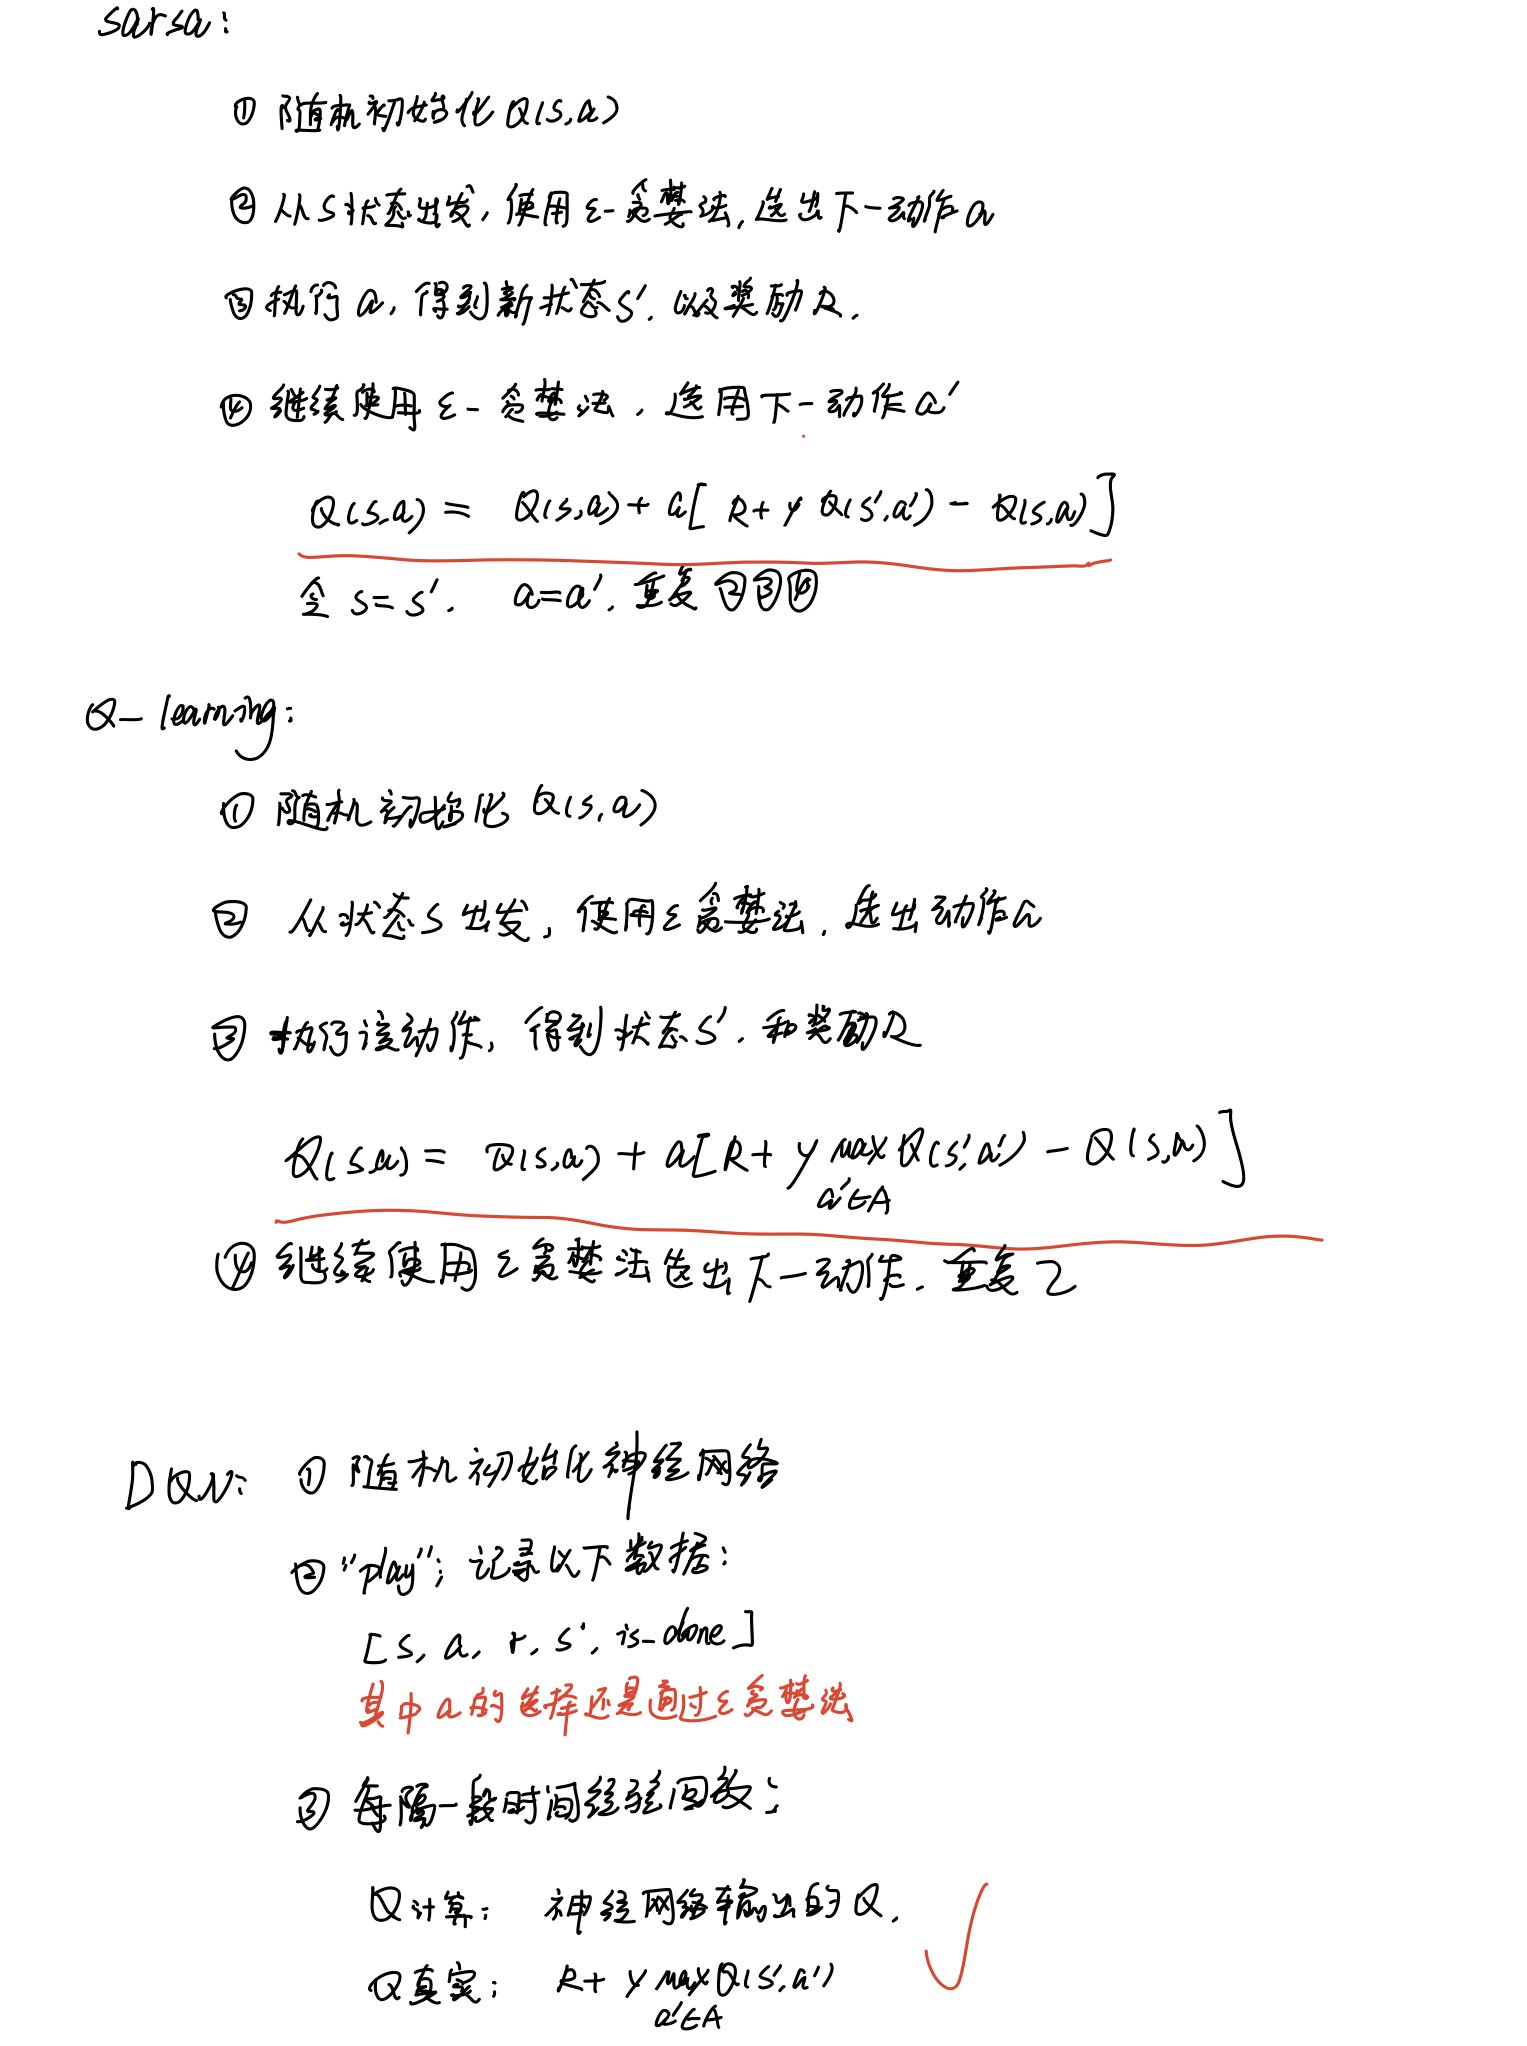 sarsa:
① 随机初始化 Q(s,a)
② 从S状态出发, 使用 ε-贪婪法, 选出下一动作 a
③ 执行 a, 得到新状态S', 以及奖励 R.
④ 继续使用 ε-贪婪法, 选用下一动作 a'
Q(s,a) = Q(s,a) + α[R + γ Q(s',a') - Q(s,a)]
令 s=s'. a=a'. 重复②③④
Q-learning:
① 随机初始化 Q(s,a)
② 从状态S出发, 使用ε贪婪法, 选出动作a
③ 执行该动作, 得到状态S', 和奖励R
Q(s,a) = Q(s,a) + α[R + γ max Q(s',a') - Q(s,a)]
a'∈A
④ 继续使用ε贪婪法选出下一动作. 重复2
DQN: ① 随机初始化神经网络
② "play"; 记录以下数据:
[s, a, r, s', is_done]
其中a的选择还是通过ε贪婪法
③ 每隔一段时间经验回放:
Q计算: 神经网络输出的Q.
Q真实: R + γ max Q(s',a')
a'∈A